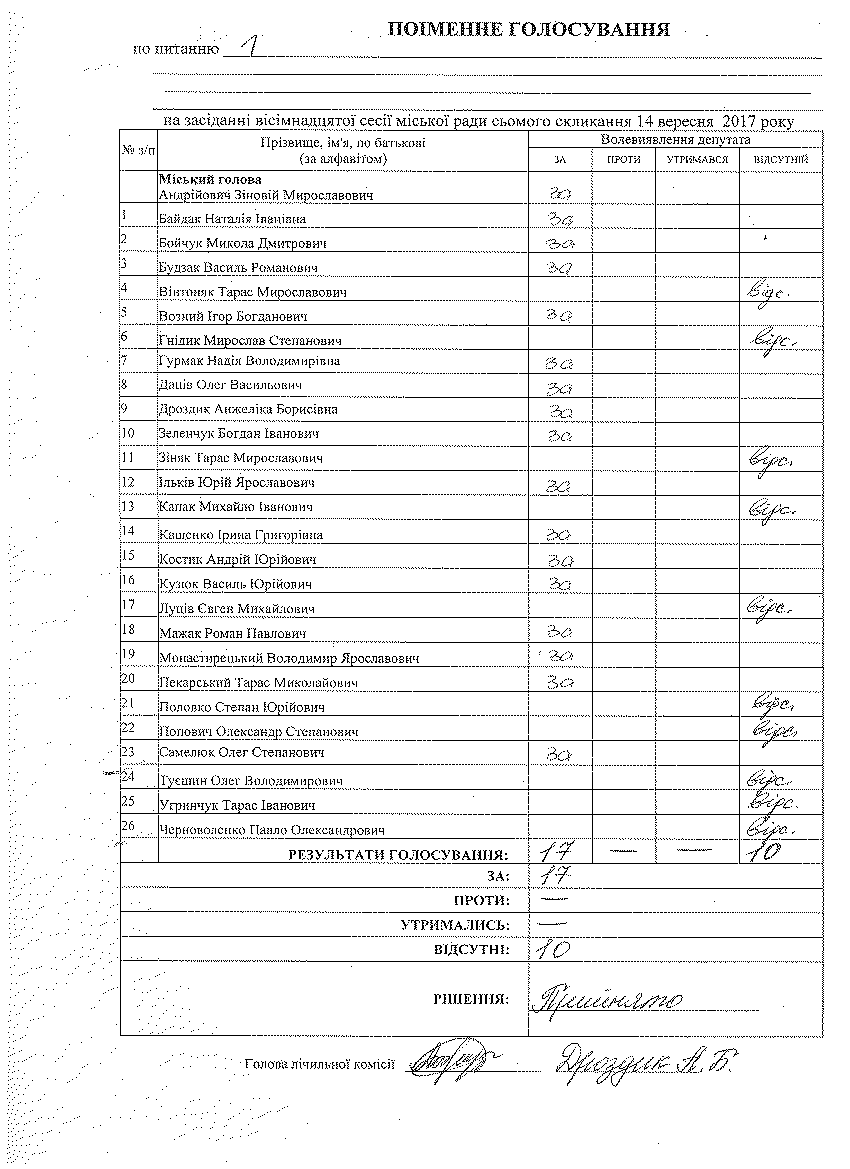 ПОІМЕННЕ ГОЛОСУВАННЯ
по питанню 1
на засіданні вісімнадцятої сесії міської ради сьомого скликання 14 вересня 2017 року
№ з/п Прізвище, ім'я, по батькові (за алфавітом) Волевиявлення депутата
ЗА ПРОТИ УТРИМАВСЯ ВІДСУТНІЙ
Міський голова
Андрійович Зіновій Мирославович за
1 Байдак Наталія Іванівна за
2 Бойчук Микола Дмитрович за
3 Будзак Василь Романович за
4 Вінтоняк Тарас Мирославович відс.
5 Возний Ігор Богданович за
6 Гнідик Мирослав Степанович відс.
7 Гурмак Надія Володимирівна за
8 Даців Олег Васильович за
9 Дроздик Анжеліка Борисівна за
10 Зеленчук Богдан Іванович за
11 Зіняк Тарас Мирославович відс.
12 Ільків Юрій Ярославович за
13 Капак Михайло Іванович відс.
14 Кащенко Ірина Григорівна за
15 Костик Андрій Юрійович за
16 Кузюк Василь Юрійович за
17 Луців Євген Михайлович відс.
18 Мажак Роман Павлович за
19 Монастирецький Володимир Ярославович за
20 Пекарський Тарас Миколайович за
21 Половко Степан Юрійович відс.
22 Попович Олександр Степанович відс.
23 Самелюк Олег Степанович за
24 Туєшин Олег Володимирович відс.
25 Угринчук Тарас Іванович відс.
26 Черноволенко Павло Олександрович відс.
РЕЗУЛЬТАТИ ГОЛОСУВАННЯ: 17 — — 10
ЗА: 17
ПРОТИ: —
УТРИМАЛИСЬ: —
ВІДСУТНІ: 10
РІШЕННЯ: Прийнято
Голова лічильної комісії Дроздик А. Б.